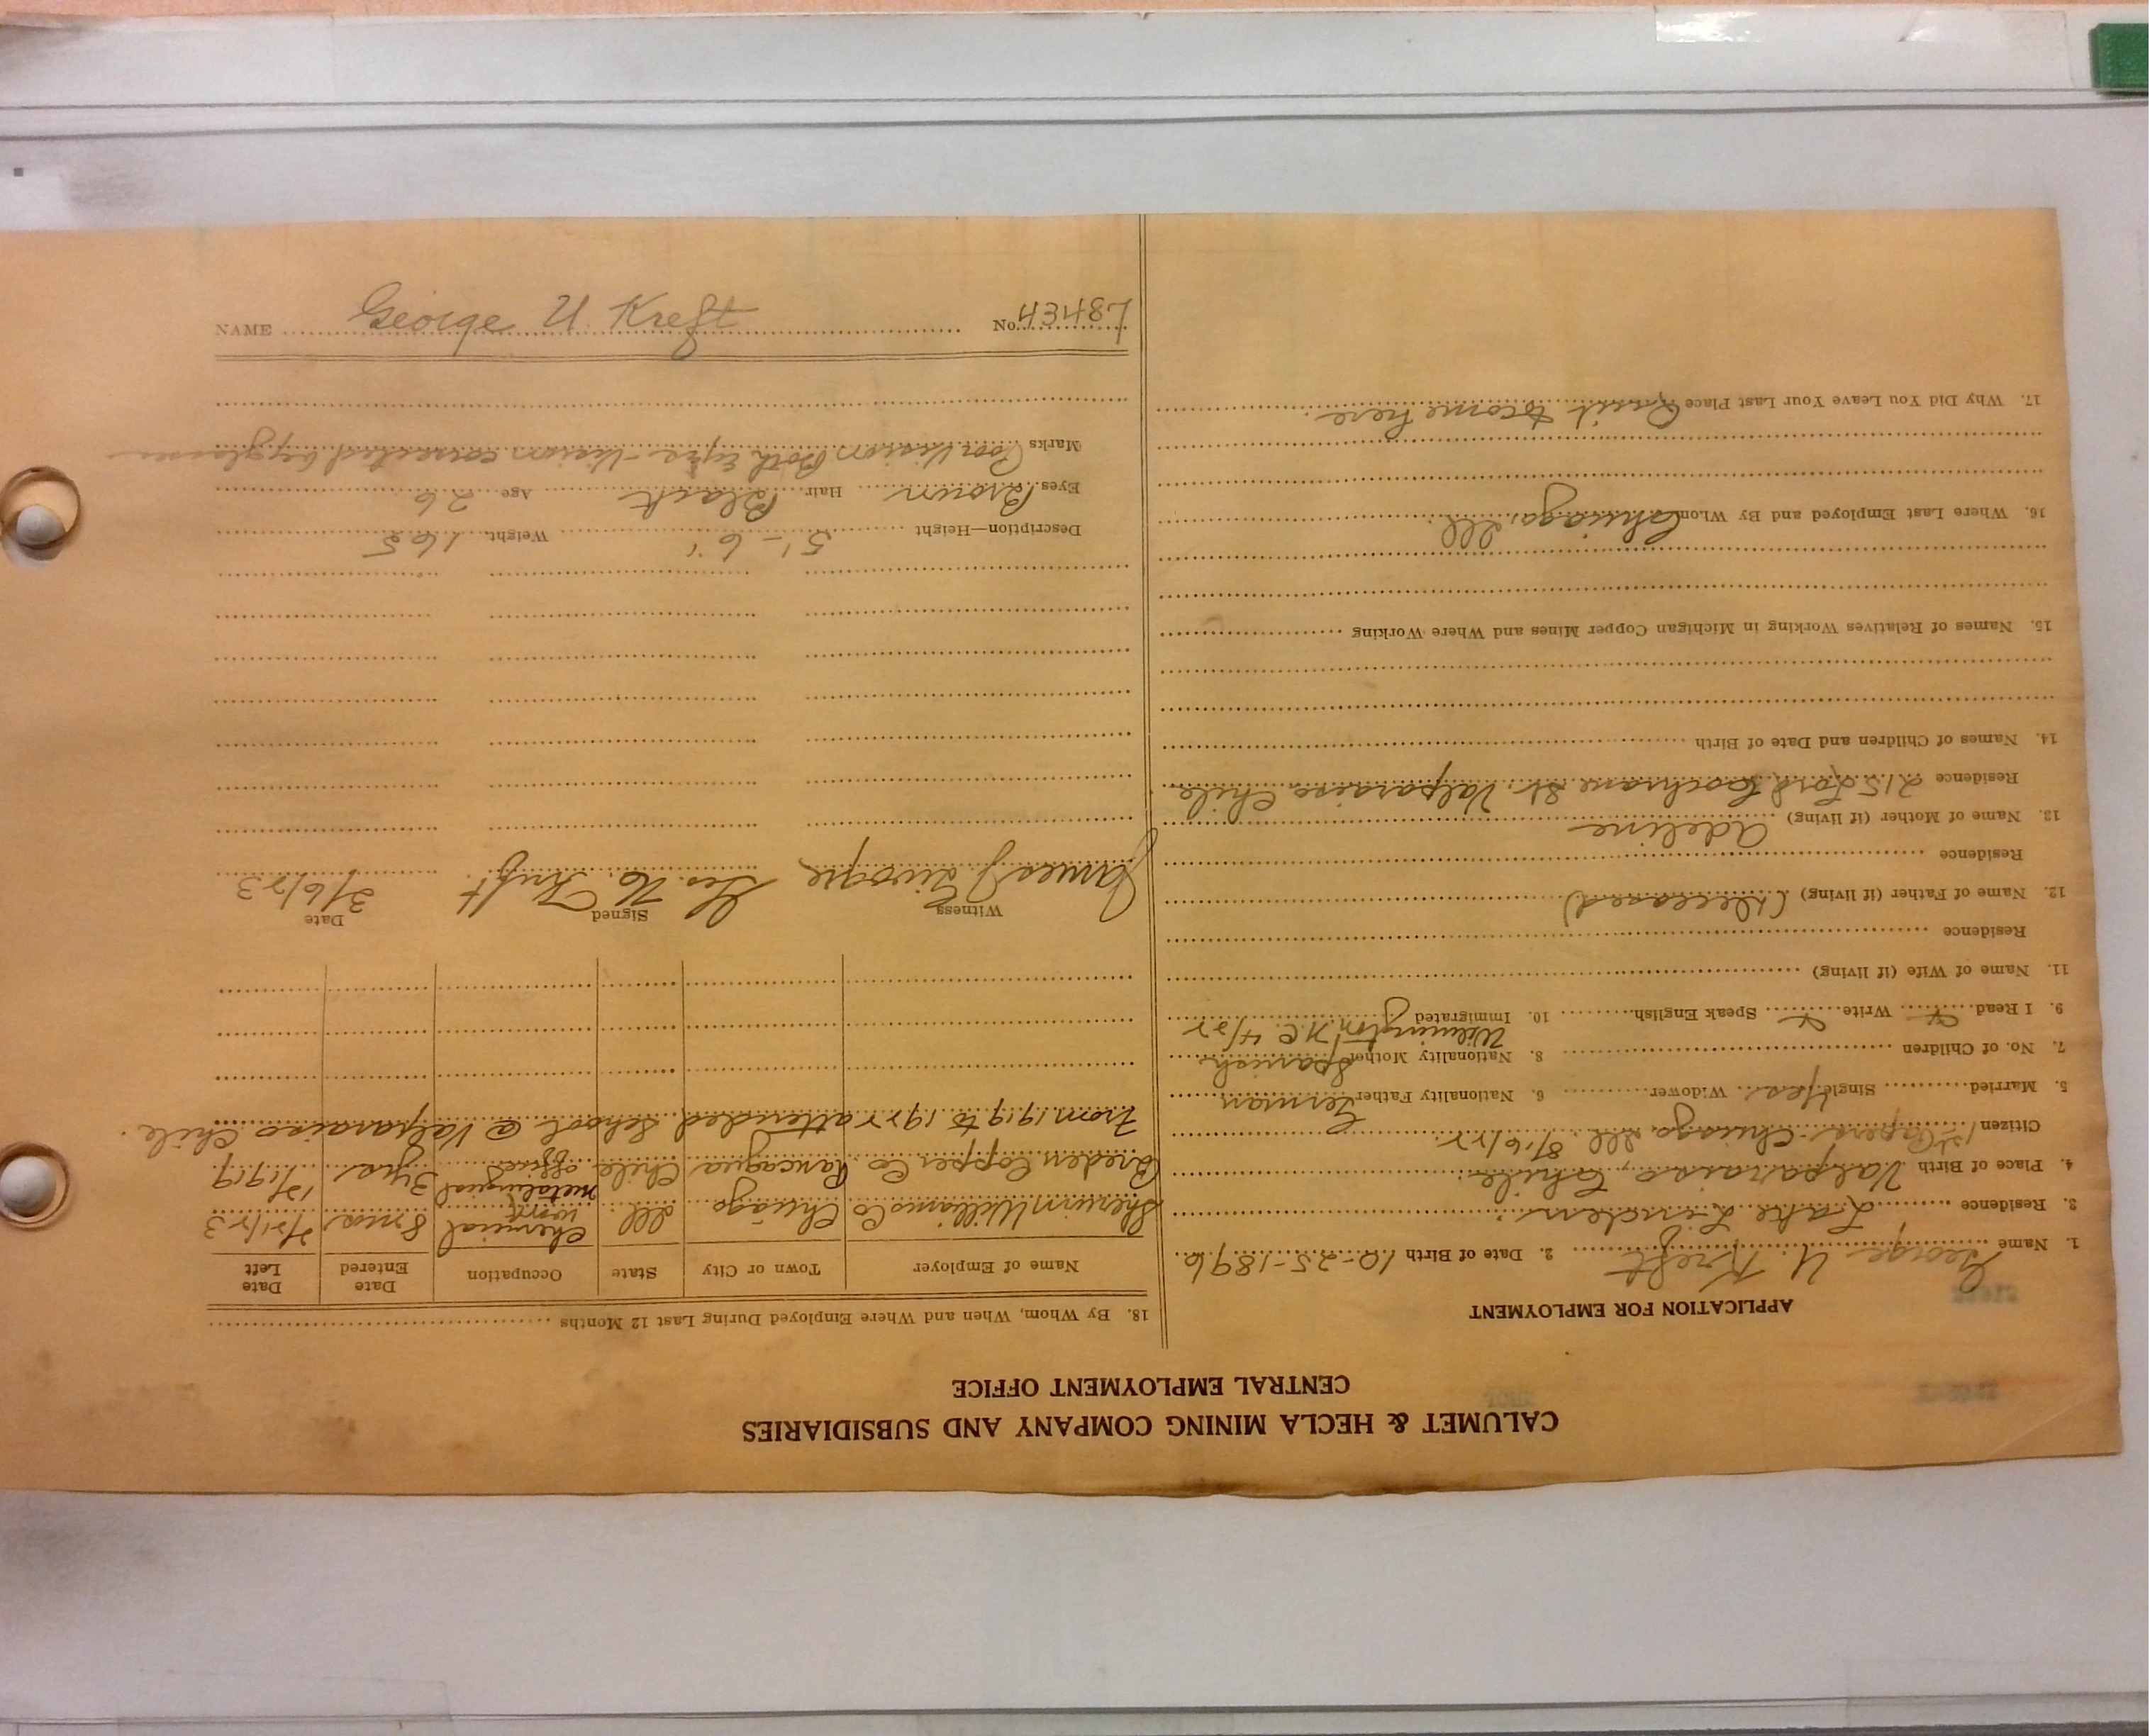 CALUMET & HECLA MINING COMPANY AND SUBSIDIARIES
CENTRAL EMPLOYMENT OFFICE
APPLICATION FOR EMPLOYMENT
1. Name George U. Kreft 2. Date of Birth 10-25-1896
3. Residence Lake Linden
4. Place of Birth Valparaiso Chile.
Citizen 1st Papers - Chicago Ill. 8/16/22.
5. Married Single Yes Widower 6. Nationality Father German
7. No. of Children 8. Nationality Mother Spanish
9. I Read Write Speak English 10. Immigrated Wilmington N.C. 4/22
11. Name of Wife (if living)
Residence
12. Name of Father (if living) (Deceased)
Residence
13. Name of Mother (if living) Adeline
Residence 215 Lord Cochrane St. Valparaiso Chile
14. Names of Children and Date of Birth
15. Names of Relatives Working in Michigan Copper Mines and Where Working
16. Where Last Employed and By Whom Chicago, Ill.
17. Why Did You Leave Your Last Place Quit to come here.
18. By Whom, When and Where Employed During Last 12 Months
Name of Employer Town or City State Occupation Date Entered Date Left
Sherwin Williams Co Chicago Ill. Chemical work 8 mos 2/21/23
Breden Copper Co Rancagua Chile metalurgical office 3 yrs 12/1919
From 1919 to 1922 attended School @ Valparaiso Chile.
Witness Signed Date
James J Geo. U. Kreft 3/6/23
Description—Height 5'-6" Weight 165
Eyes Brown Hair Black Age 26
Marks Poor Vision Both Eyes - Vision corrected by glasses
NAME George U. Kreft No.